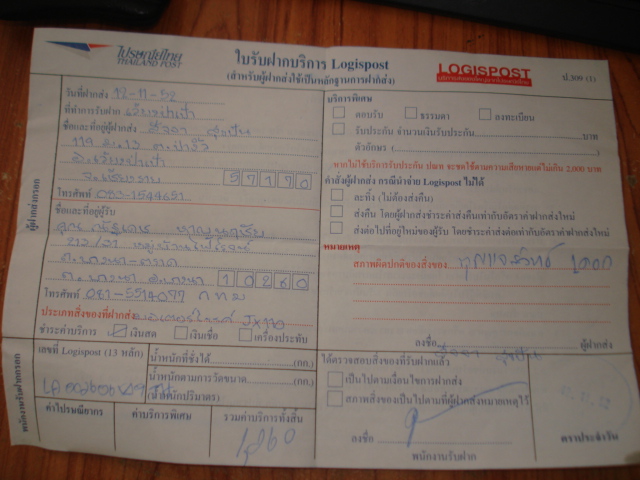 ไปรษณีย์ไทย
THAILAND POST
ใบรับฝากบริการ Logispost
(สำหรับผู้ฝากส่งใช้เป็นหลักฐานการฝากส่ง)
LOGISPOST
ป.309 (1)
วันที่ฝากส่ง 12-11-52
ที่ทำการรับฝาก เวียงป่าเป้า
ชื่อและที่อยู่ผู้ฝากส่ง
119 ม.13 ต.ป่างิ้ว
อ.เวียงป่าเป้า
จ.เชียงราย 57170
โทรศัพท์ 083-1544651
ชื่อและที่อยู่ผู้รับ
212/31
ถ.บางนา-ตราด
ต.บางนา อ.บางนา 10260
โทรศัพท์ 081-5514077 กทม
ประเภทสิ่งของที่ฝากส่ง มอเตอร์ไซค์ JX110
ชำระค่าบริการ เงินสด เงินเชื่อ เครื่องประทับ
ผู้ฝากส่งกรอก
บริการพิเศษ
ตอบรับ ธรรมดา ลงทะเบียน
รับประกัน จำนวนเงินรับประกัน บาท
ตัวอักษร ( )
หากไม่ใช้บริการรับประกัน ปณท จะชดใช้ตามความเสียหายแต่ไม่เกิน 2,000 บาท
คำสั่งผู้ฝากส่ง กรณีนำจ่าย Logispost ไม่ได้
ละทิ้ง (ไม่ต้องส่งคืน)
ส่งคืน โดยผู้ฝากส่งชำระค่าส่งคืนเท่ากับอัตราค่าฝากส่งใหม่
ส่งต่อไปที่อยู่ใหม่ของผู้รับ โดยชำระค่าส่งต่อเท่ากับอัตราค่าฝากส่งใหม่
หมายเหตุ
สภาพผิดปกติของสิ่งของ
ลงชื่อ ผู้ฝากส่ง
พนักงานรับฝากกรอก
เลขที่ Logispost (13 หลัก)
น้ำหนักที่ชั่งได้ (กก.)
น้ำหนักตามการวัดขนาด (กก.)
(น้ำหนักปริมาตร)
ค่าไปรษณียากร
ค่าบริการพิเศษ
รวมค่าบริการทั้งสิ้น
ได้ตรวจสอบสิ่งของที่รับฝากแล้ว
เป็นไปตามเงื่อนไขการฝากส่ง
สภาพสิ่งของเป็นไปตามที่ผู้ฝากส่งหมายเหตุไว้
ลงชื่อ
พนักงานรับฝาก
ตราประจำวัน